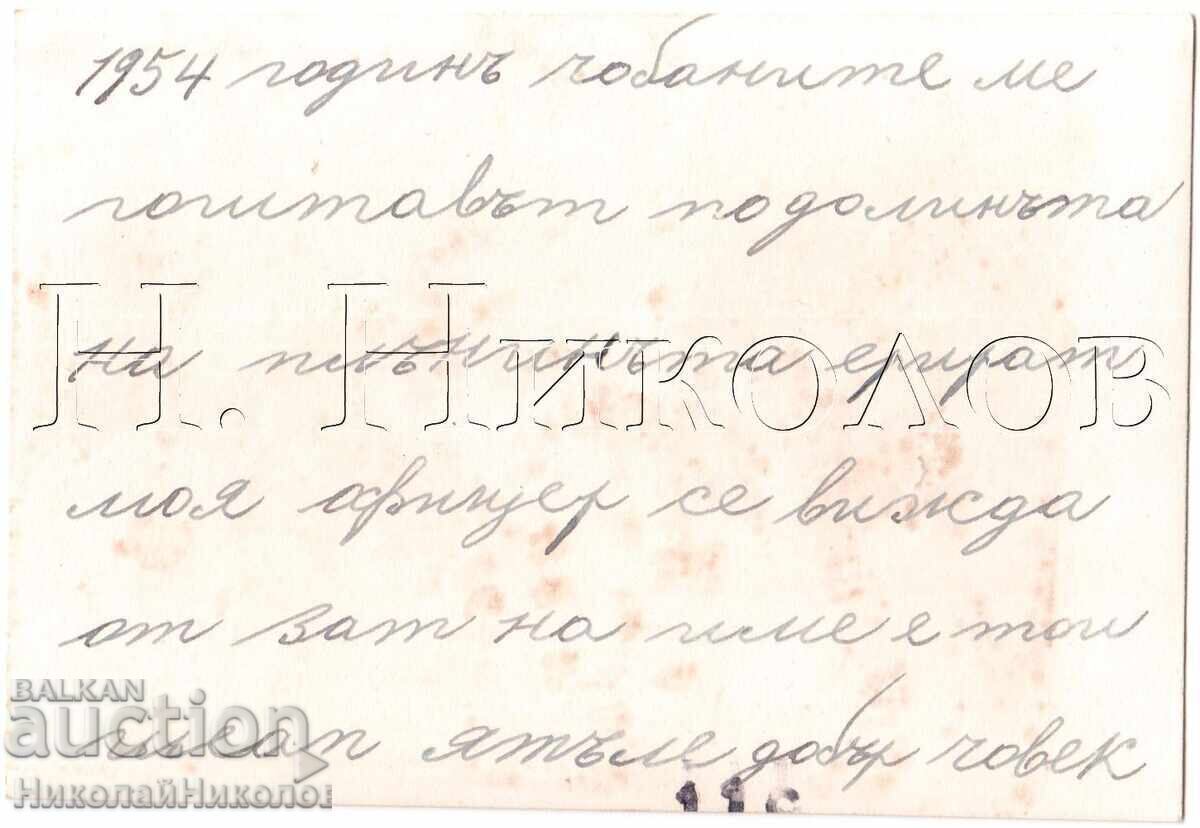 1954 годинъ чобаните ме
гоштавът по долинъта
на плънинъта
моя офицер се вижда
от зат на име е тои
ятъле добър човек
Н. Николов
BALKAN
auction
НиколайНиколов